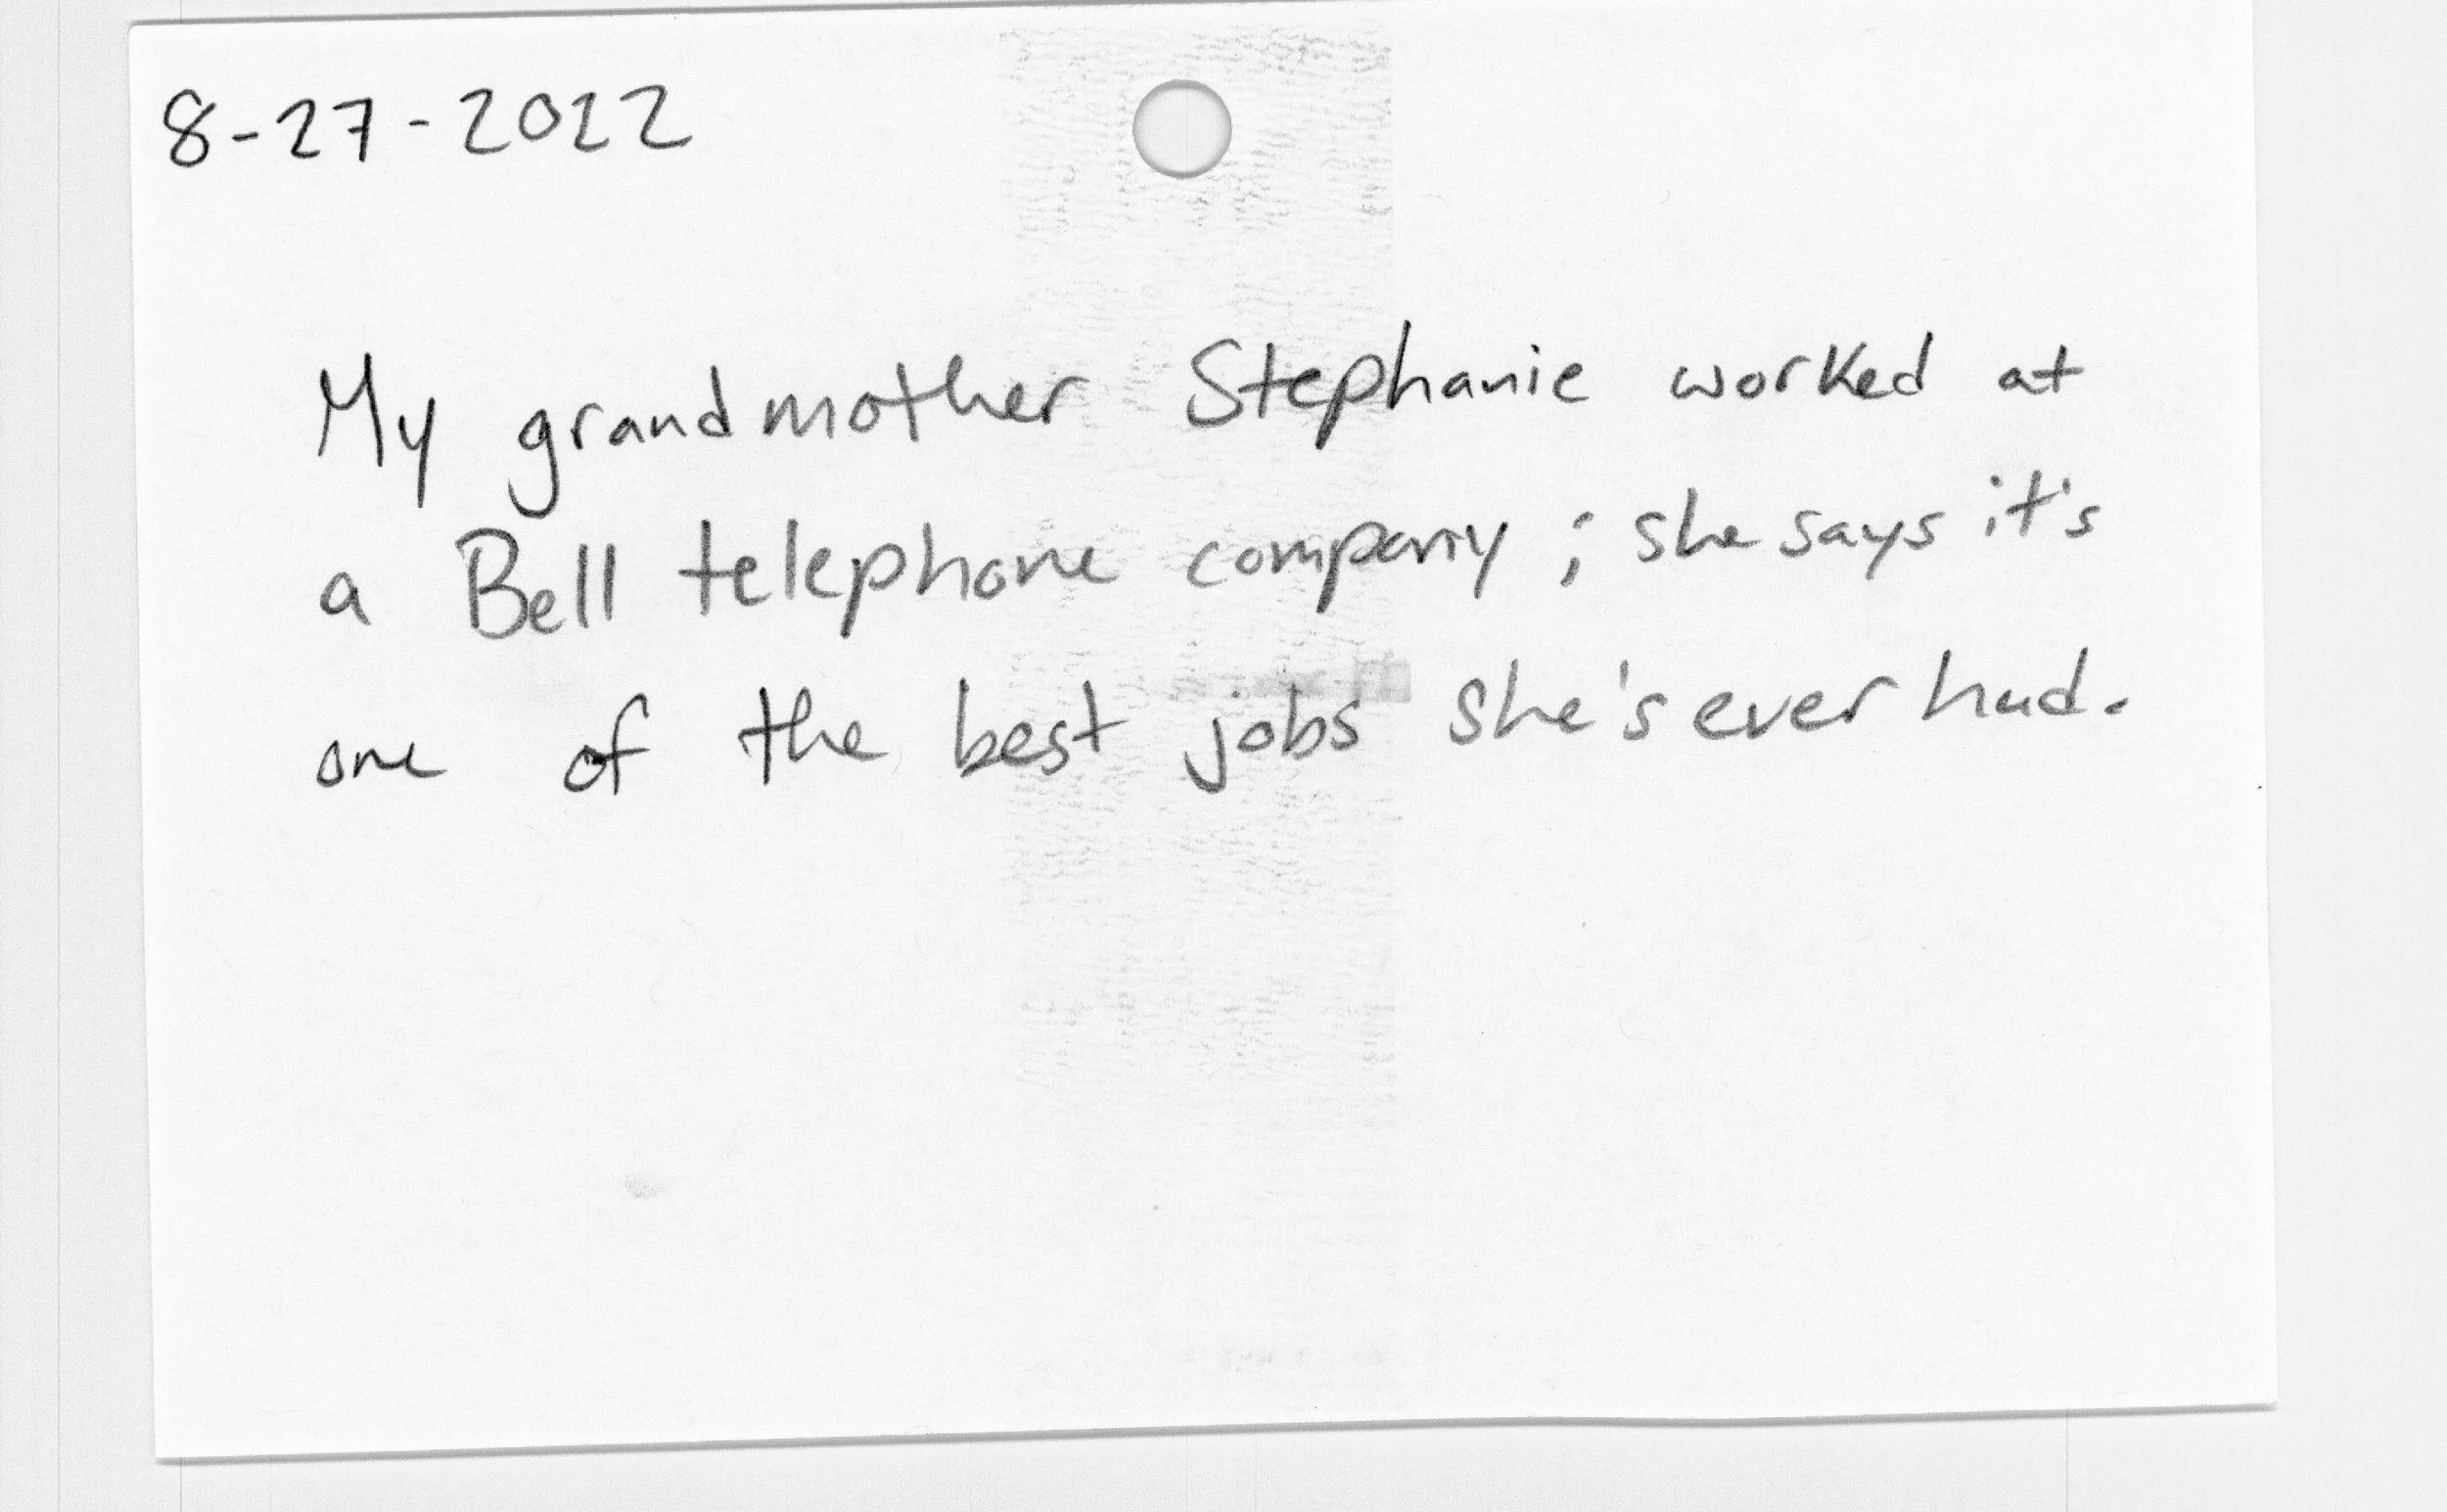 8-27-2022
My grandmother Stephanie worked at
a Bell telephone company; she says it's
one of the best jobs she's ever had.